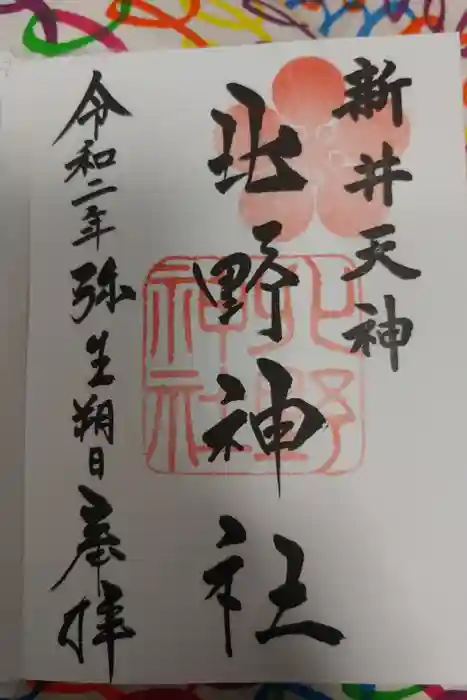 新井天神
北野神社
北野神社
令和二年弥生朔日奉拝